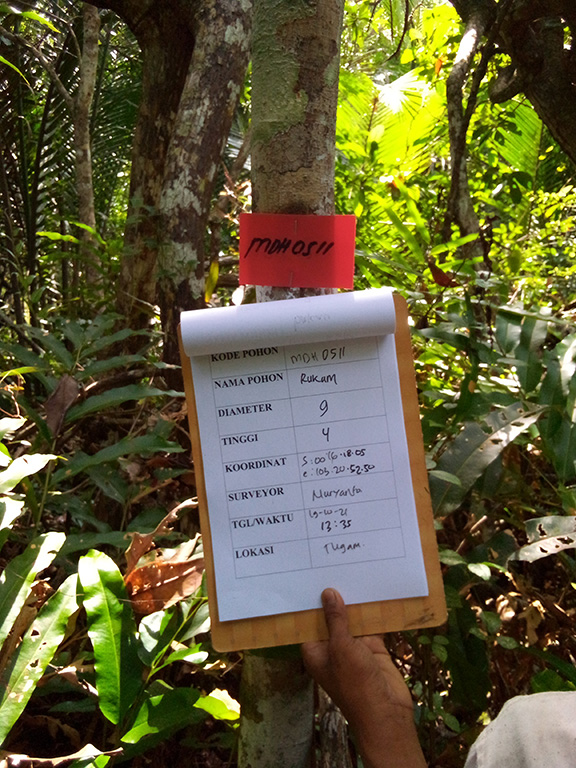 MDH 0511
KODE POHON MDH 0511
NAMA POHON Rukam
DIAMETER 9
TINGGI 4
KOORDINAT S:00.16.18.05
e:103.20.52.50
SURVEYOR Nuryanto
TGL/WAKTU 19-10-21
13:35
LOKASI